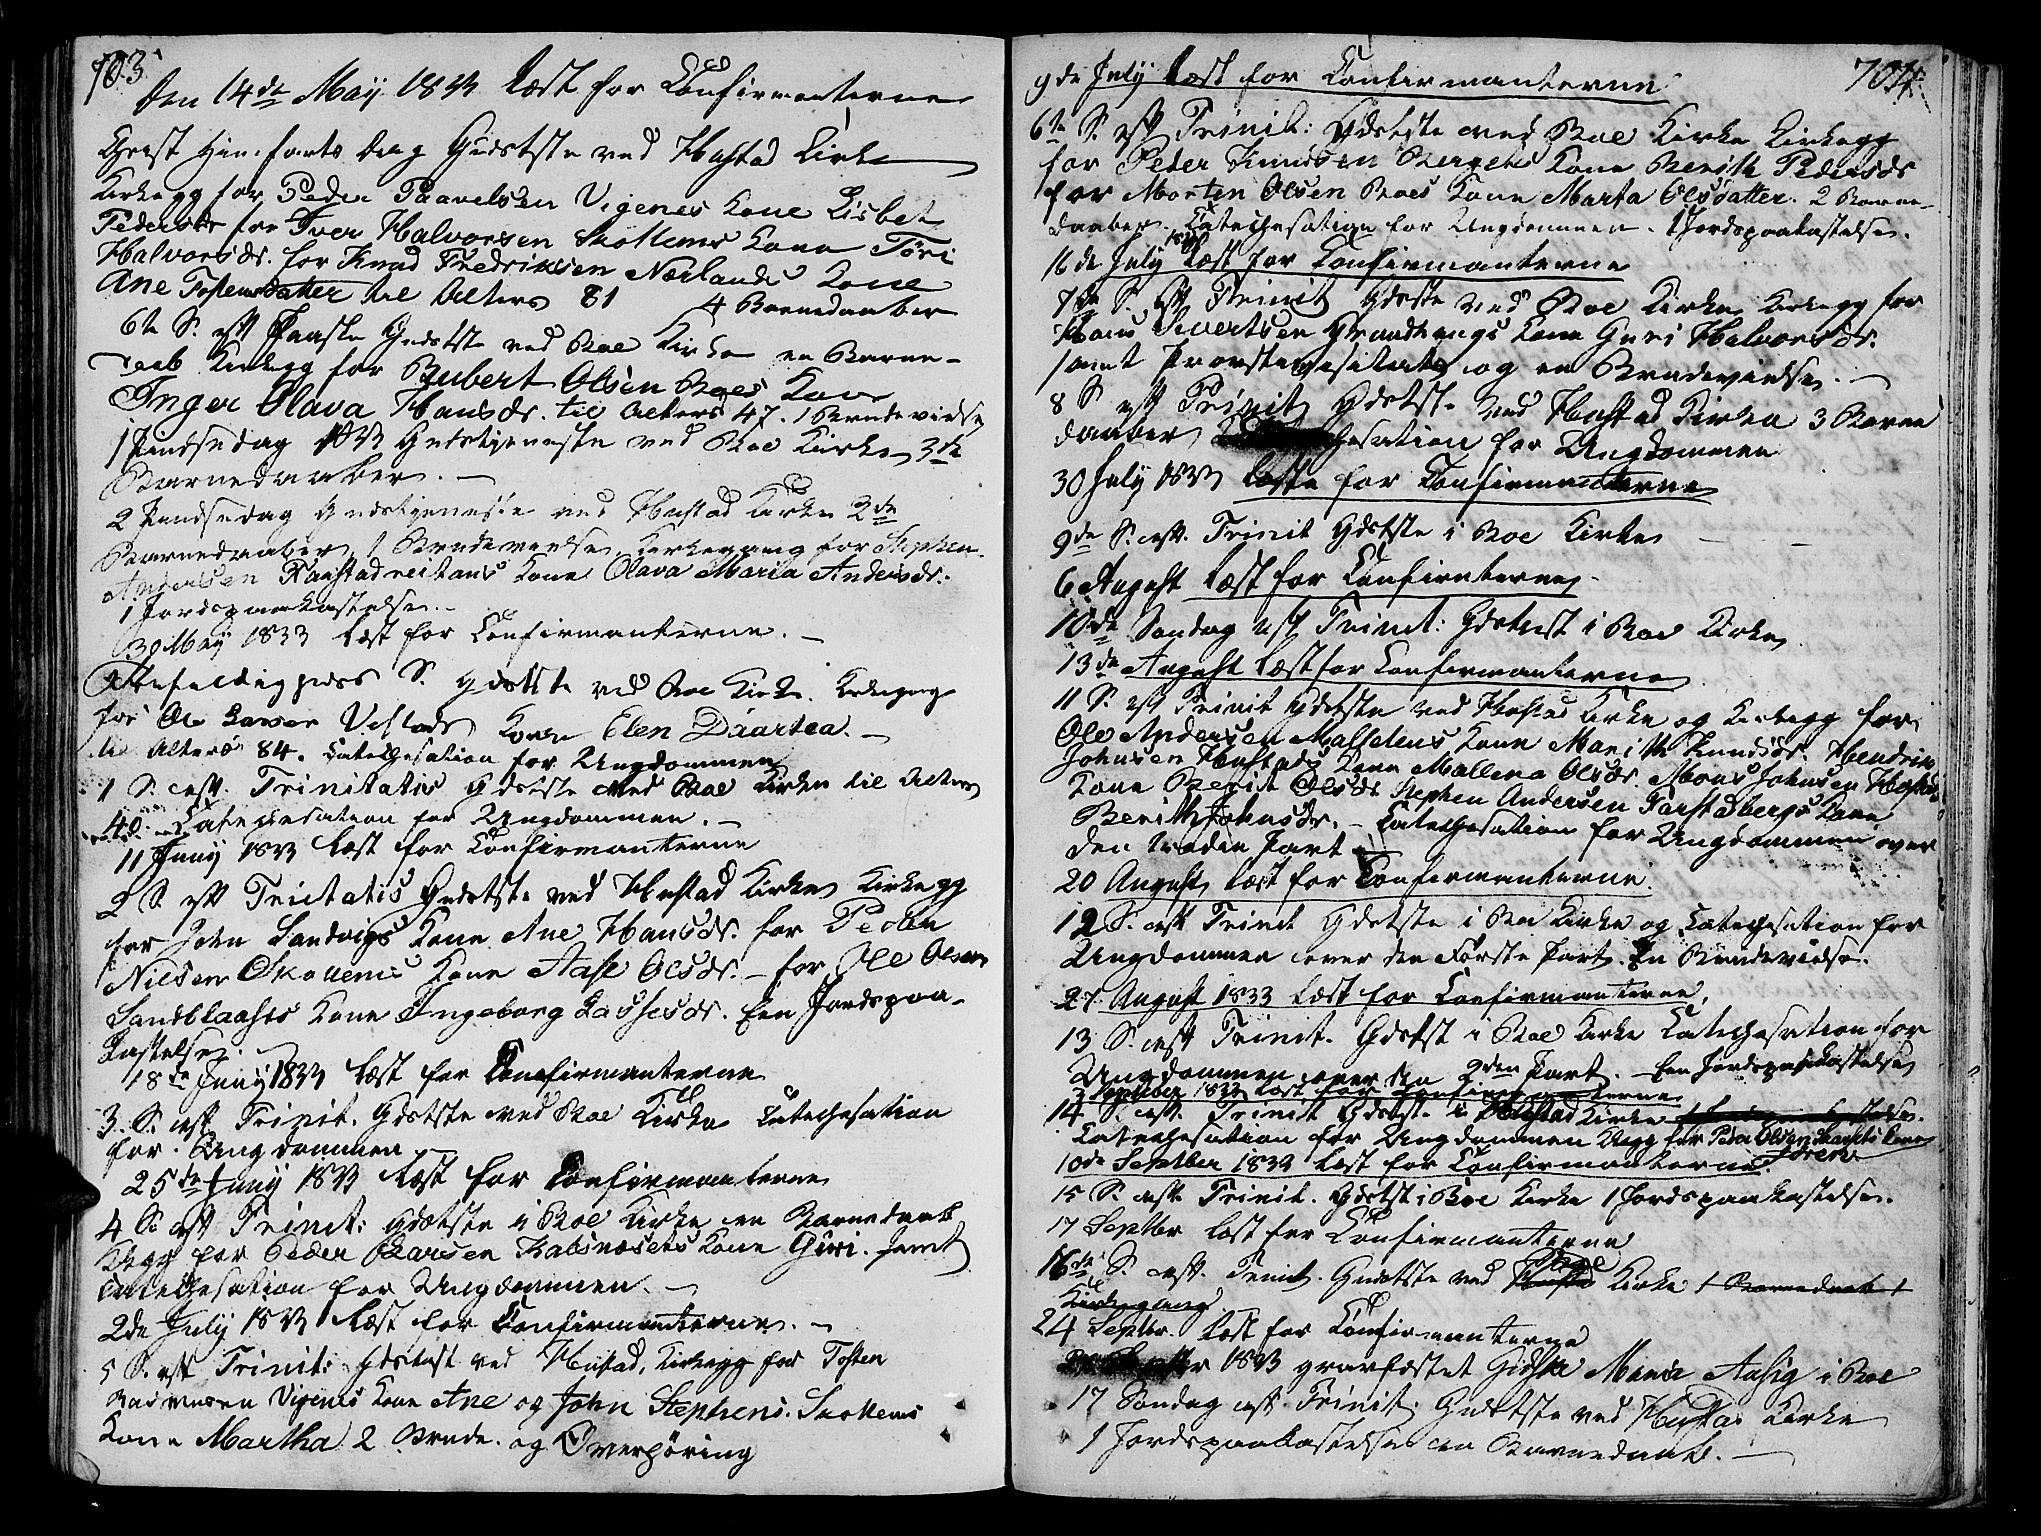 703
den 14de May 1833 læst for Confirmanterne
Christ Him.farts dag Gudstste ved Hustad Kirke
Kirkegg for Peder Paavelsen Vigenes Kone Lisbet
Pedersdr for Iver Halvorsen Skottems Kone Töri
Halvorsdr. for Knud Fredriksen Nerlands Kone
Ane Tostensdatter til Alters 81 4 Barnedaaber
6te S. eft Paaske Gudstste ved Boe Kirke en Barne-
daab Kirkegg for Rubert Olsen Boes Kone
Inger Olava Hansdr. til Alters 47. 1 Brudevielse
1 Pindsedag 1833 Gudstjeneste ved Boe Kirke 3de
Barnedaaber. —
2 Pindsedag Gudstjeneste ved Hustad Kirke 2de
Barnedaaber 1 Brudevielse Kirkegang for Stephen
Andersen Farstad Kone Olava Maria Andersdr.
1 Jordspaakastelse. -
30 May 1833 læst for Confirmanterne. —
Trefoldigheds S. Gdstste ved Boe Kirke. Kirkegang
for Ole Larsen Vestads Kone Elen Daartea. —
til Alters 84. Catechesation for Ungdommen
1 S. eft. Trinitatis Gdstste ved Boe Kirke til Alters
40. Catechesation for Ungdommen. —
11 Juny 1833 læst for Confirmanterne
2 S. eft Trinitatis Gudstste ved Hustad Kirke Kirkegg
for John Sandvigs Kone Ane Hansdr. for Peder
Nilsen Skottems Kone Aase Olsdr. - for Ole Olsen
Sandblaasts Kone Ingeborg Lassesdr. Een Jordspaa-
kastelse.
18de Juny 1833 læst for Confirmanterne
3. S. eft Trinit. Gdstste ved Boe Kirke Catechesation
for Ungdommen
25de Juny 1833 læst for Confirmanterne
4 S. eft Trinit: Gdstste i Boe Kirke en Barnedaab
Kkgg for Peder Larsen Kalsnæsets Kone Guri. samt
Catechesation for Ungdommen. —
2de July 1833 læst for Confirmanterne. —
5 S. eft Trinit: Gdstst ved Hustad, Kirkegg for Tosten
Rasmusen Vigenes Kone Ane og John Stephens. Skottems
Kone Martha 2 Brude. og Overhöring
704.
9de July læst for Confirmanterne
6te S. eft Trinit: Gdstste ved Boe Kirke Kirkegg
for Peder Knudsen Bergets Kone Berith Pedersdr
for Morten Olsen Boes Kone Marta Olsdatter. 2 Barne-
daaber. Catechesation for Ungdommen. 1 Jordspaakastelse.
16de July 1833 læst for Confirmanterne
7de S. eft Trinit Gdstste ved Boe Kirke Kirkegg for
Hans Sivertsen Strandhaugs Kone Guri Halvorsdr.
samt Provstevisitats og en Brudevielse. —
8 S eft Trinit Gdstste ved Hustad Kirke 3 Barne
daaber Catechesation for Ungdommen
30 July 1833 læste for Confirmanterne
9de S. eft. Trinit Gdstste i Boe Kirke
6 August læst for Confirmterne
10de Sondag eft Trinit: Gdstnst i Boe Kirke
13de August læst for Confirmanterne
11 S. eft Trinit Gdstste ved Hustad Kirke og Kirkegg for
Ole Andersen Malefetens Kone Marith Knudsdr. Hendrik
Johnsen Hustads Kone Mallena Olsdr. Mons Johnsen Hustads
Kone Berit Olsdr Stephen Andersen Farstadbergs Kone
Berith Johnsdr. - Catechesation for Ungdommen over
den tredie Part
20 August læst for Confirmanterne.
12 S. eft Trinit Gdstste i Boe Kirke og Catechesation for
Ungdommen over den Förste Part. En Brudevielse.
27 August 1833 læst for Confirmanterne.
13 S. eft Trinit. Gdstst i Boe Kirke Catechesation for
Ungdommen over den 2den Part. - Een Jordspaakastelse
3 September 1833 læst for Confirmanterne
14 S. eft. Trinit Gdstste i Hustad Kirke
Catechesation for Ungdommen Kkgg for Peder Olsen Kone
10de Septber 1833 læst for Confirmanterne
15 S. eft Trinit. Gdstst i Boe Kirke 1 Jordspaakastelse.
17 Septbr læst for Confirmanterne
16de S. eft. Trinit. Gudstste ved Boe Kirke 1 Barnedaab 1
Kirkegang.
24 Septbr. læst for Confirmanterne
1833 gravfæstet Gidske Maria Aasig i Boe
17 Sondag eft. Trinit. Gudstste ved Hustad Kirke
1 Jordspaakastelse en Barnedaab. —